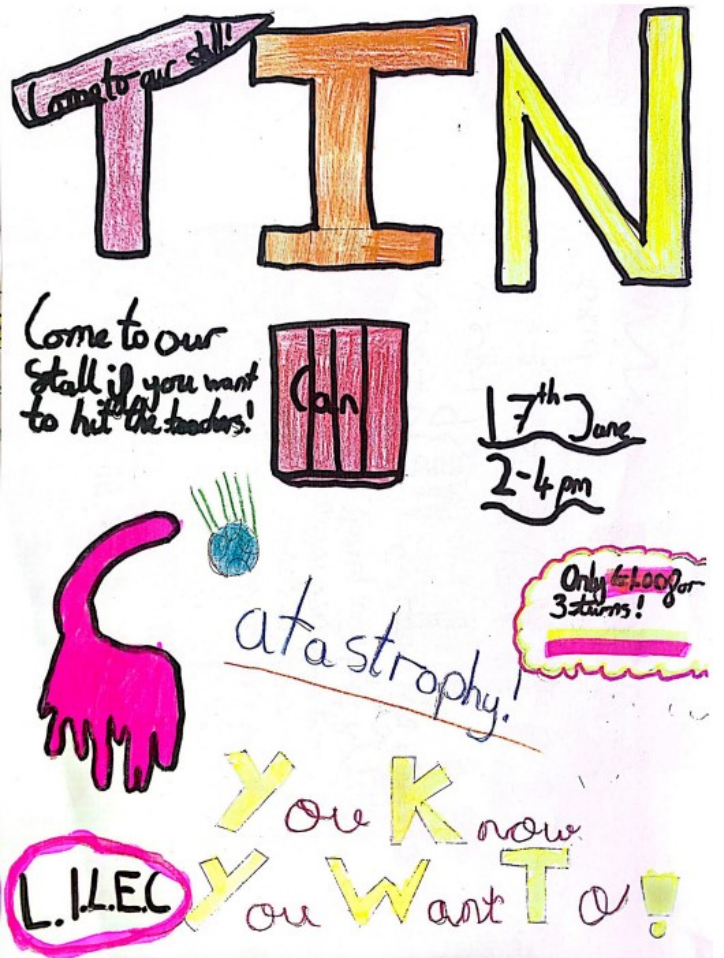 Come to our stall!
TIN
Come to our
Stall if you want
to hit the teachers!
Can
17th June
2-4 pm
Only £1.00 for
3 turns!
Catastrophy!
You Know
You Want To!
L.I.L.E.C